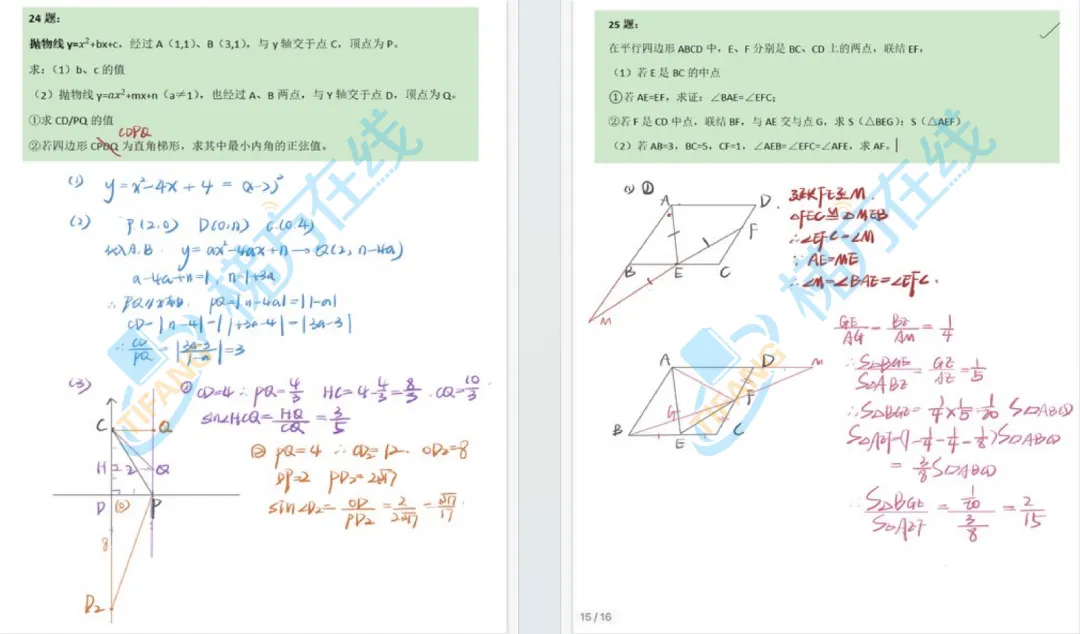 24 题:
抛物线 y=x²+bx+c，经过 A（1,1）、B（3,1），与 y 轴交于点 C，顶点为 P。
求：（1）b、c 的值
（2）抛物线 y=ax²+mx+n（a≠1），也经过 A、B 两点，与 Y 轴交于点 D，顶点为 Q。
①求 CD/PQ 的值
CDPQ
②若四边形 CPDQ 为直角梯形，求其中最小内角的正弦值。
(1) y=x²-4x+4=(x-2)²
(2) P(2,0) D(0,n) C(0,4)
代入A.B. y=ax²-4ax+n→Q(2, n-4a)
a-4a+n=1, n=1+3a
∴PQ//y轴 PQ=|n-4a|=|1-a|
CD=|n-4|=|1+3a-4|=|3a-3|
∴CD/PQ=|3a-3/1-a|=3
(3) ① CD=4∴PQ=4/3 HC=4-4/3=8/3 CQ=10/3
sin∠HCQ=HQ/CQ=3/5
② PQ=4 ∴CD₂=12. OD₂=8
OP=2 PD₂=2√17
sin∠D₂=OP/PD₂=2/2√17=√17/17
C
Q
H
2
Q
D
(0)
P
8
D₂
25 题:
在平行四边形 ABCD 中，E、F 分别是 BC、CD 上的两点，联结 EF，
（1）若 E 是 BC 的中点
①若 AE=EF，求证：∠BAE=∠EFC；
②若 F 是 CD 中点，联结 BF，与 AE 交与点 G，求 S（△BEG）：S（△AEF）
（2）若 AB=3，BC=5，CF=1，∠AEB=∠EFC=∠AFE，求 AF。
(1) ①
A
D
F
B
E
C
M
延长FE至M.
△FEC≌△MEB
∴∠EFC=∠M
∵AE=ME
∴∠M=∠BAE=∠EFC.
GE/AG=BE/AM=1/4
∴S△BGE/S△ABE=GE/AE=1/5
∴S△BGE=1/4×1/5=1/20 S▱ABCD
S△AEF=(1-1/4-1/4-1/8)S▱ABCD
=3/8S▱ABCD
∴S△BGE/S△AEF=1/20/3/8=2/15
A
D
M
G
F
B
E
C
梯方在线
TIFANG
梯方在线
TIFANG
15 / 16